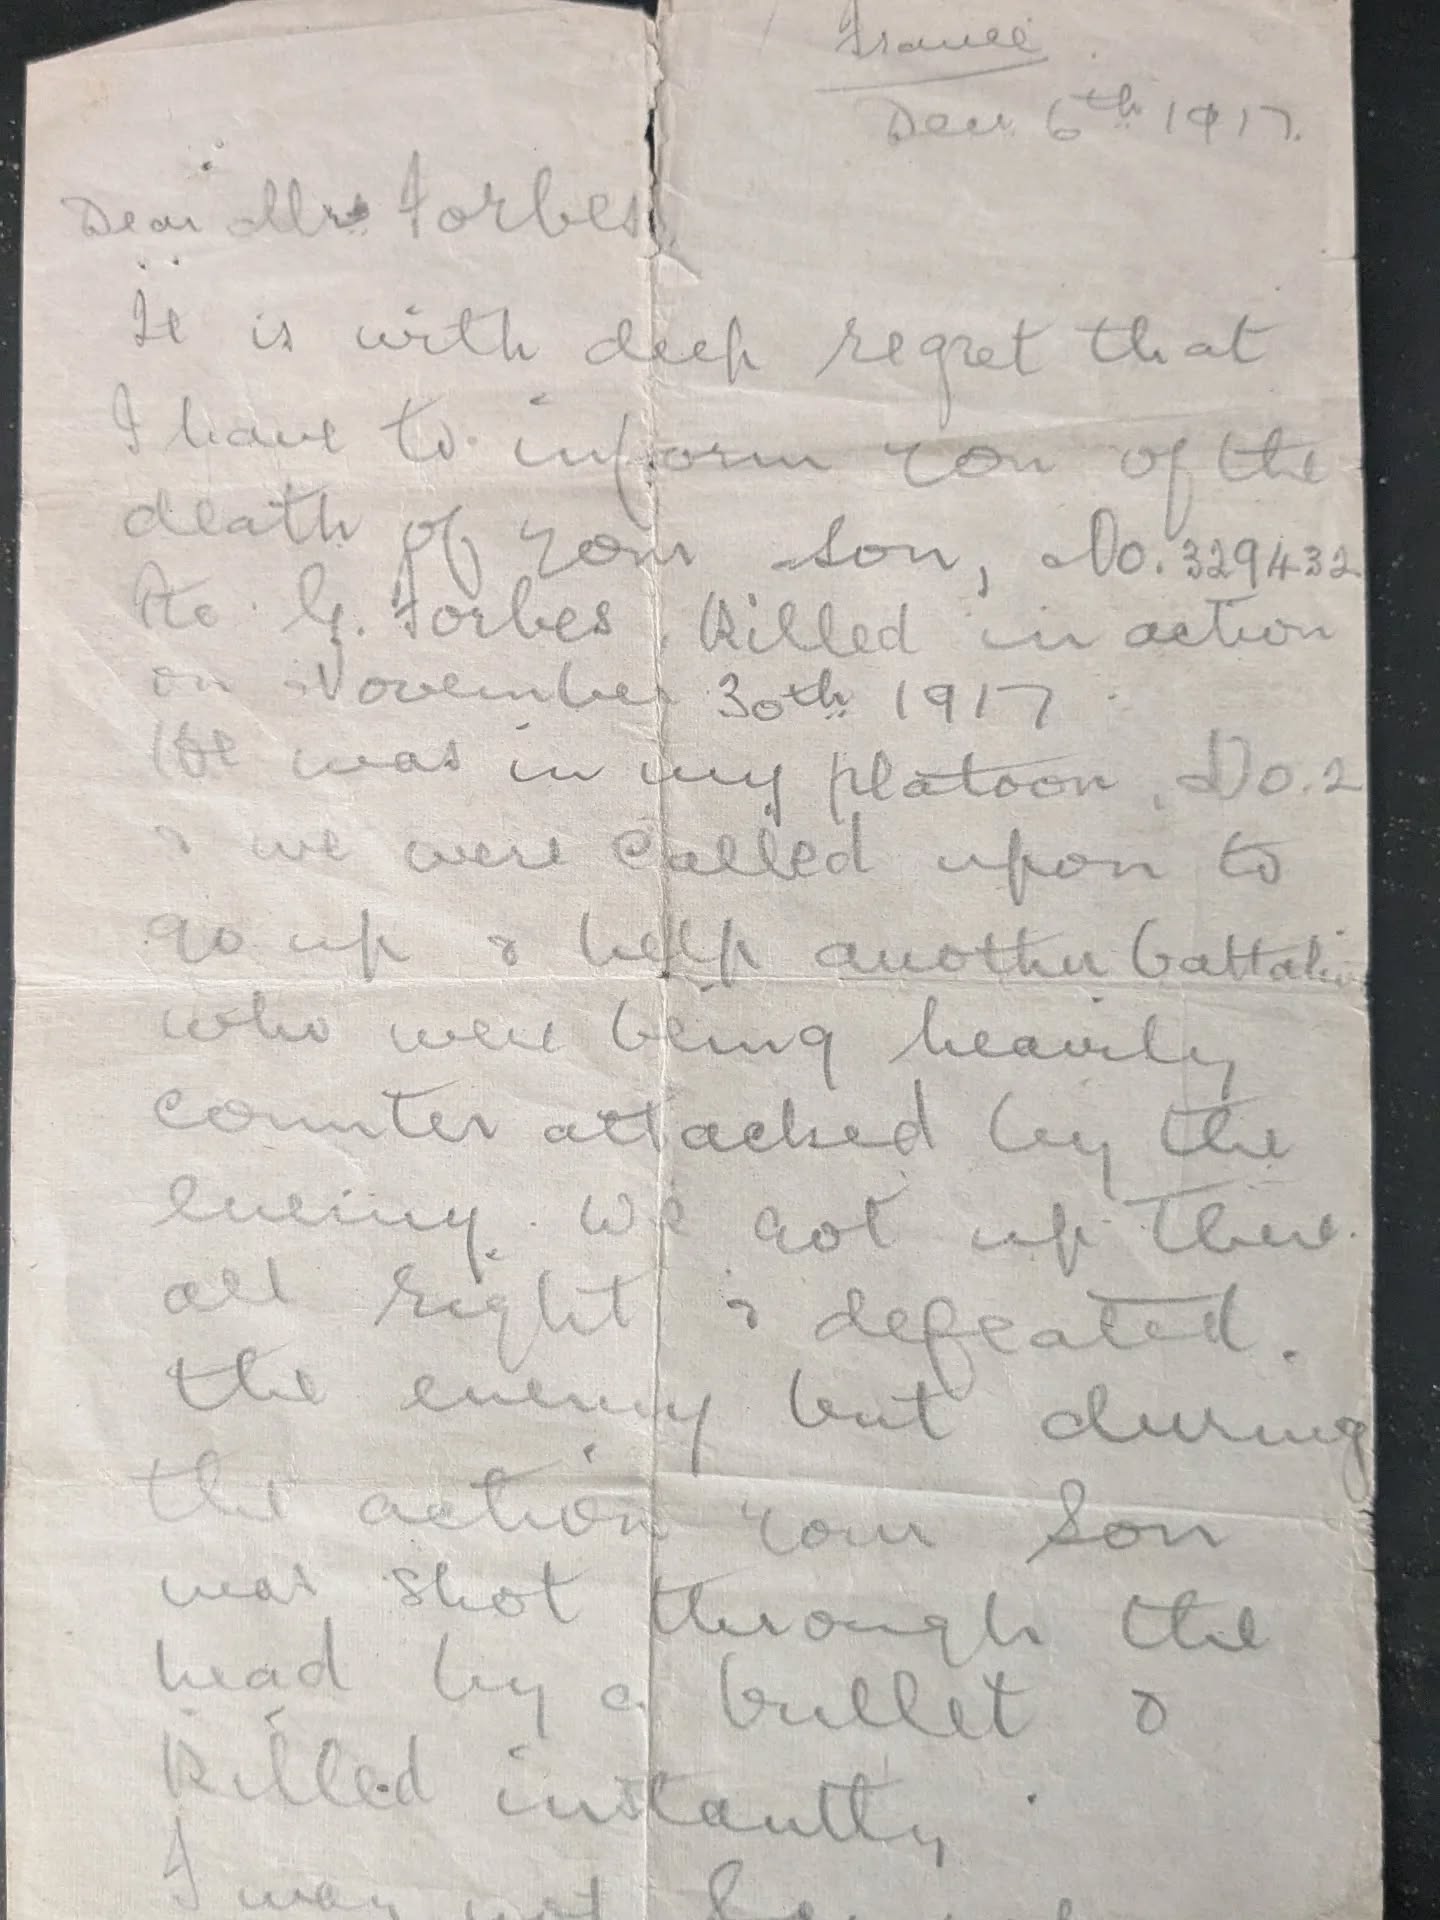 France
Dec. 6th 1917.
Dear Mrs. Forbes,
It is with deep regret that
I have to inform you of the
death of your son, No. 329432
Pte G. Forbes, Killed in action
on November 30th 1917.
He was in my platoon, No. 2
& we were called upon to
go up & help another battalion
who were being heavily
counter attacked by the
enemy. We got up there
all right & defeated.
the enemy but during
the action your Son
was shot through the
head by a bullet &
Killed instantly.
I was not